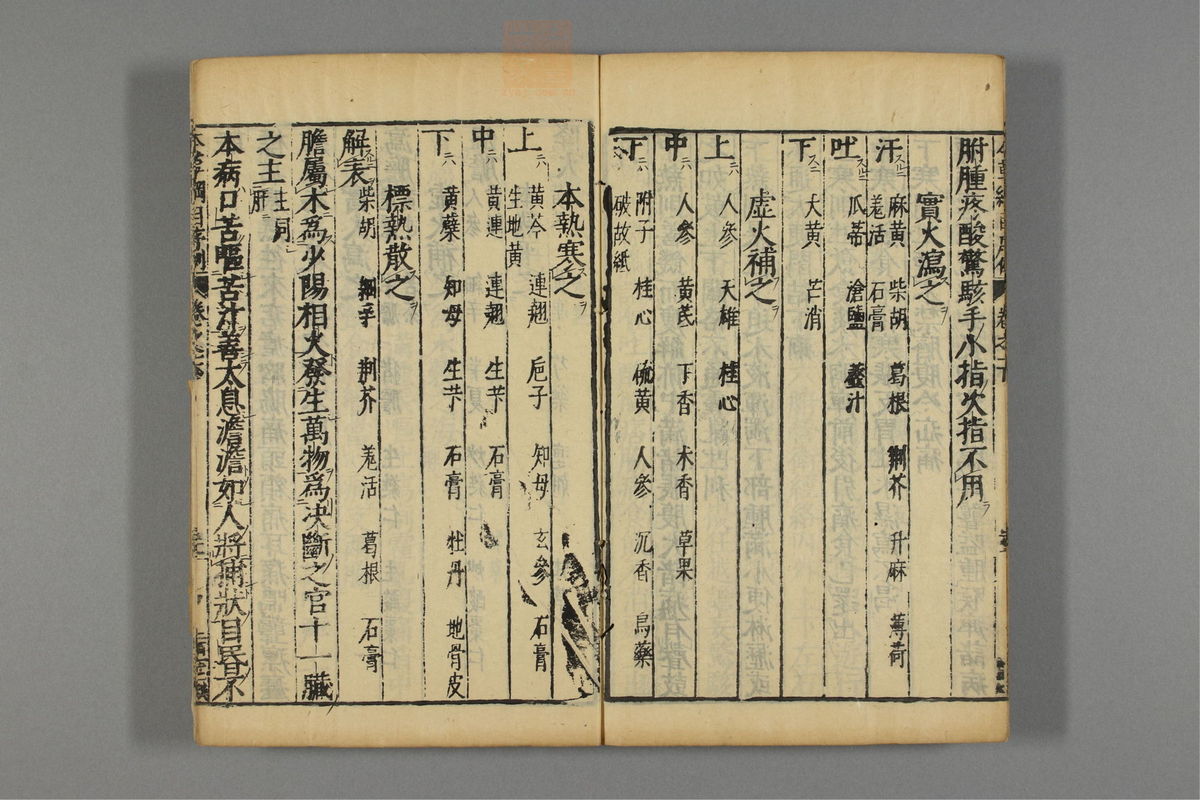 胕腫疼酸驚駭手小指次指不用
實火瀉之
汗 麻黄 柴胡 葛根 荆芥 升麻 薄荷
羗活 石膏
吐 瓜蒂 滄鹽 虀汁
下 大黄 芒消
虛火補之
上 人參 天雄 桂心
中 人參 黄芪 丁香 木香 草果
下 附子 桂心 硫黄 人參 沉香 烏藥
破故紙
本熱寒之
上 黄芩 連翹 巵子 知母 玄參 石膏
生地黄
中 黄連 連翹 生苄 石膏
下 黄蘗 知母 生苄 石膏 牡丹 地骨皮
標熱散之
解表 柴胡 細辛 荆芥 羗活 葛根 石膏
膽屬木爲少陽相火發生萬物爲决斷之官十一臟
之主 主同肝
本病口苦嘔苦汁善太息澹澹如人將捕狀目昏不